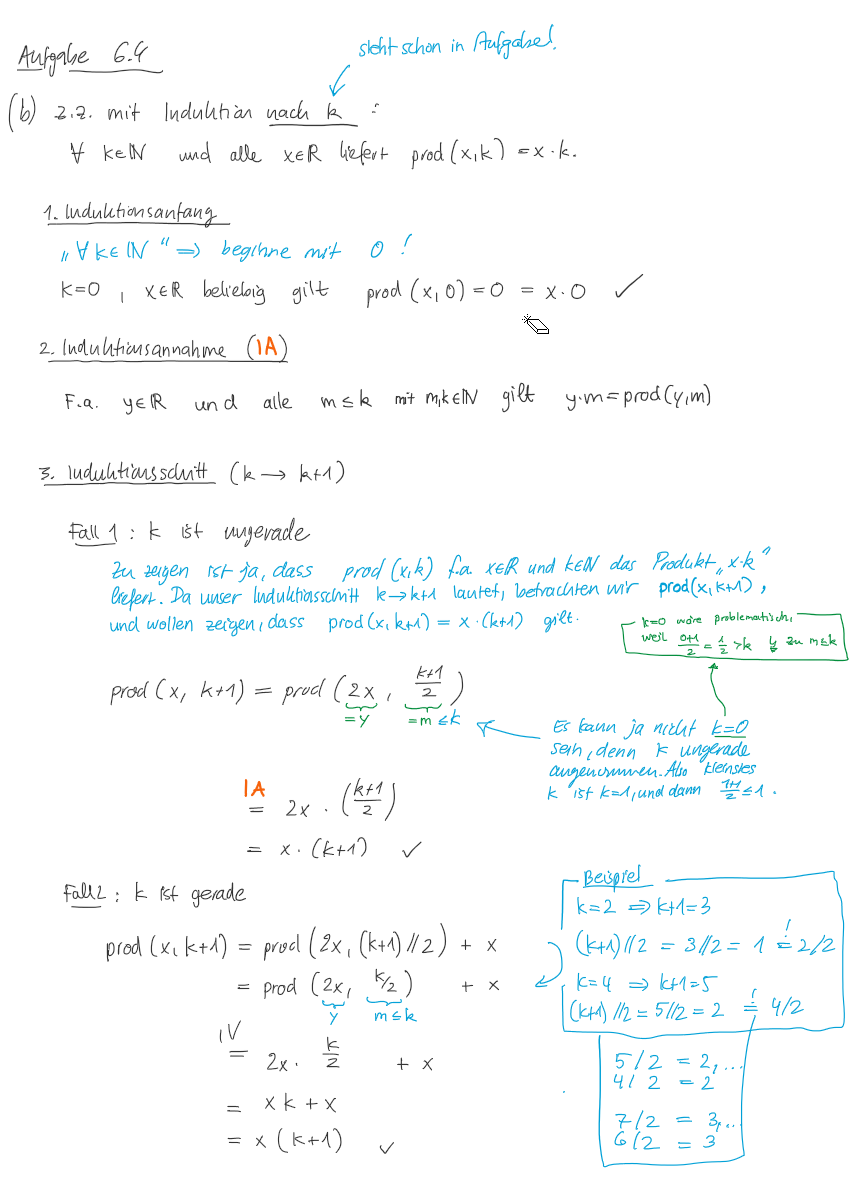 Aufgabe 6.4
steht schon in Aufgabe!
(b) z.z. mit Induktion nach k :
∀ k∈ℕ und alle x∈ℝ liefert prod(x,k) = x·k.
1. Induktionsanfang
„∀ k∈ℕ“ ⇒ beginne mit 0 !
k=0 , x∈ℝ beliebig gilt prod(x,0) = 0 = x·0 ✓
2. Induktionsannahme (IA)
F.a. y∈ℝ und alle m≤k mit m,k∈ℕ gilt y·m = prod(y,m)
3. Induktionsschritt (k → k+1)
Fall 1 : k ist ungerade
Zu zeigen ist ja, dass prod(x,k) f.a. x∈ℝ und k∈ℕ das Produkt „x·k“
liefert. Da unser Induktionsschritt k→k+1 lautet, betrachten wir prod(x,k+1),
und wollen zeigen, dass prod(x,k+1) = x·(k+1) gilt.
k=0 wäre problematisch,
weil (0+1)/2 = 1/2 > k ↯ zu m≤k
prod(x, k+1) = prod(2x, (k+1)/2)
=y =m ≤k
Es kann ja nicht k=0
sein, denn k ungerade
angenommen. Also kleinstes
k ist k=1, und dann (1+1)/2 ≤ 1.
IA
= 2x · ((k+1)/2)
= x·(k+1) ✓
Fall 2 : k ist gerade
prod(x,k+1) = prod(2x, (k+1)//2) + x
= prod(2x, k/2) + x
y m≤k
IV
= 2x · k/2 + x
= xk + x
= x(k+1) ✓
Beispiel
k=2 ⇒ k+1=3
(k+1)//2 = 3//2 = 1 != 2/2
k=4 ⇒ k+1=5
(k+1)//2 = 5//2 = 2 != 4/2
5/2 = 2,...
4/2 = 2
7/2 = 3,...
6/2 = 3